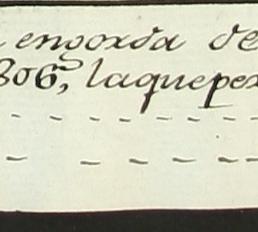 engorda de
806, laquepe
- - - - - -
- - - - - -